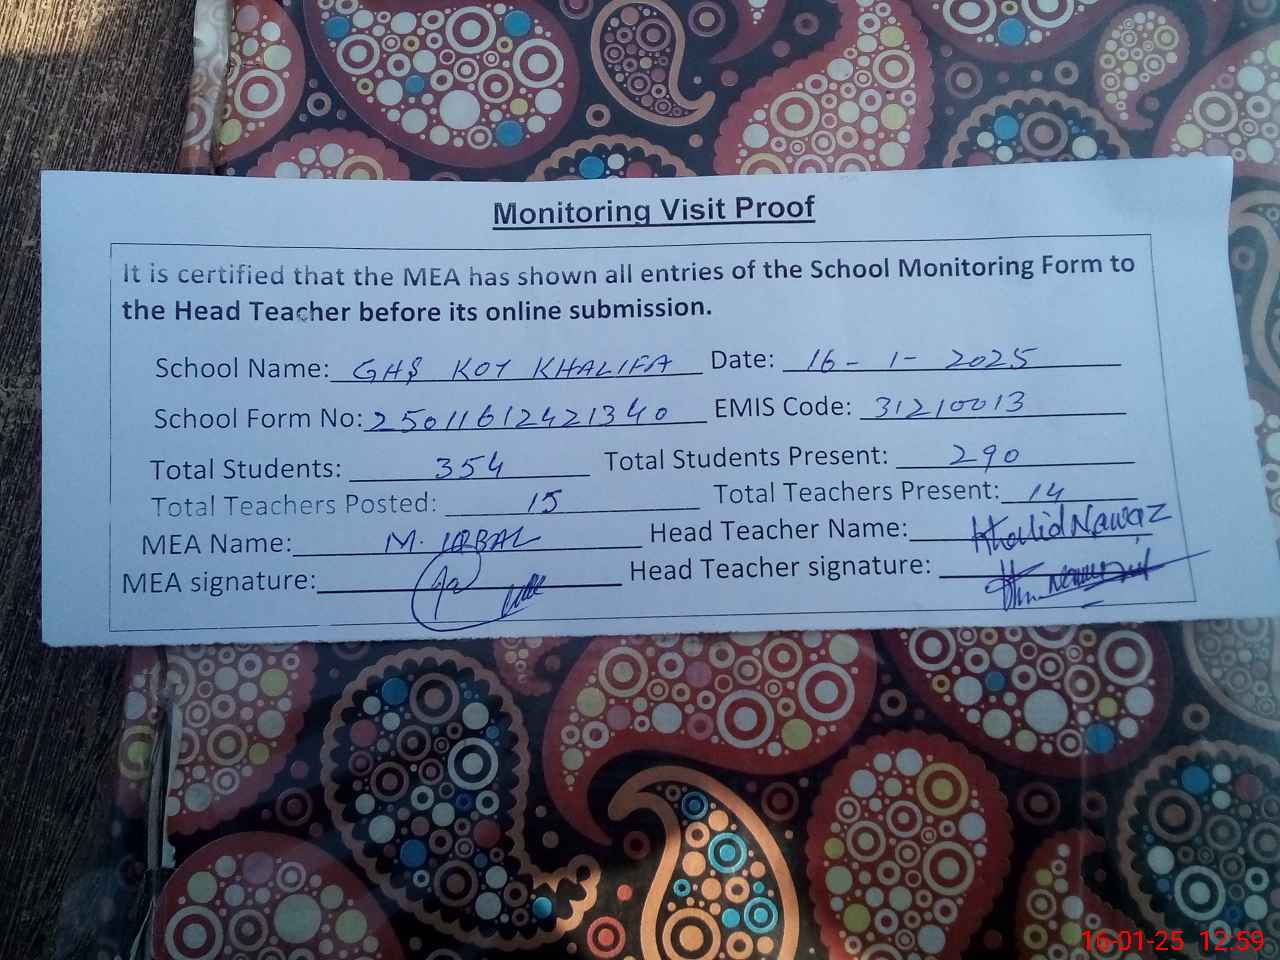 Monitoring Visit Proof
It is certified that the MEA has shown all entries of the School Monitoring Form to
the Head Teacher before its online submission.
School Name: GHS KOT KHALIFA Date: 16-1-2025
School Form No: 25011612421340 EMIS Code: 31210013
Total Students: 354 Total Students Present: 290
Total Teachers Posted: 15 Total Teachers Present: 14
MEA Name: M. IQBAL Head Teacher Name: Khalid Nawaz
MEA signature: Head Teacher signature:
16-01-25 12:59